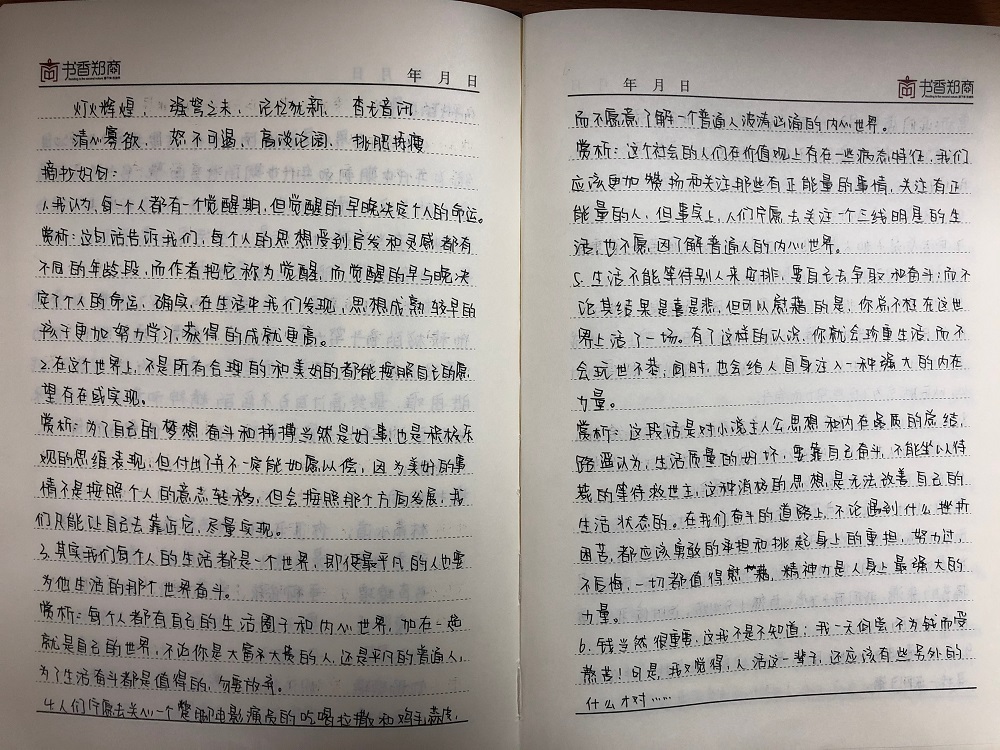 书香郑商
年 月 日
灯火辉煌、 强弩之末、 记忆犹新、 杳无音河
清心寡欲、 怒不可遏、 高谈论阔、 挑肥拣瘦
摘抄好句:
1.我认为,每一个人都有一个觉醒期,但觉醒的早晚决定个人的命运。
赏析:这句话告诉我们,每个人的思想受到启发和灵感都有
不同的年龄段,而作者把它称为觉醒,而觉醒的早与晚决
定了个人的命运。确实,在生活中我们发现,思想成熟较早的
孩子更加努力学习,获得的成就更高。
2.在这个世界上,不是所有合理的和美好的都能按照自己的愿
望存在或实现。
赏析:为了自己的梦想奋斗和拼搏当然是好事,也是积极乐
观的思维表现,但付出了并不一定能如愿以偿,因为美好的事
情不是按照个人的意志转移,但会按照那个方向发展,我
们只能让自己去靠近它,尽量实现。
3.其实我们每个人的生活都是一个世界,即便最平凡的人也要
为他生活的那个世界奋斗。
赏析:每个人都有自己的生活圈子和内心世界,加在一起
就是自己的世界,不论你是大富大贵的人,还是平凡的普通人,
为了生活奋斗都是值得的,勿要放弃。
4.人们宁愿去关心一个蹩脚电影演员的吃喝拉撒和鸡毛蒜皮,
年 月 日
书香郑商
而不愿意了解一个普通人波涛汹涌的内心世界。
赏析:这个社会的人们在价值观上存在一些病态特征,我们
应该更加发扬和关注那些有正能量的事情,关注有正
能量的人,但事实上,人们宁愿去关注一个三线明星的生
活,也不愿因了解普通人的内心世界。
5.生活不能等待别人来安排,要自己去争取和奋斗;而不
论其结果是喜是悲,但可以慰藉的是,你总不枉在这世
界上活了一场。有了这样的认识,你就会珍重生活,而不
会玩世不恭;同时,也会给人自身注入一种强大的内在
力量。
赏析:这段话是对小说主人公思想和内在品质的总结,
路遥认为,生活质量的好坏,要靠自己奋斗,不能坐以待
毙的等待救世主,这种消极的思想,是无法改善自己的
生活状态的。在我们奋斗的道路上,不论遇到什么挫折
困苦,都应该勇敢的承担和挑起身上的重担,努力过,
不后悔,一切都值得慰藉,精神力是人身上最强大的
力量。
6.钱当然很重要,这我不是不知道;我一天何尝不为钱而受
熬苦!可是,我又觉得,人活这一辈子,还应该有些另外的
什么才对……